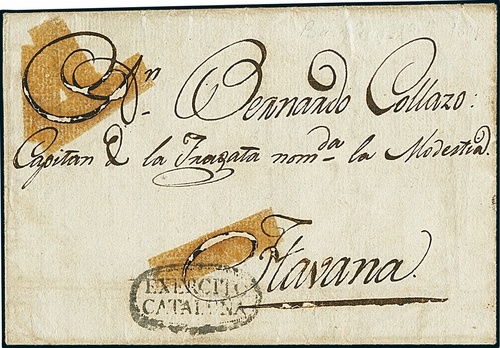 Dn. Bernardo Collazo:
Capitan d la Fragata nomda la Modestia.
Havana.
EXERCITO
CATALUÑA